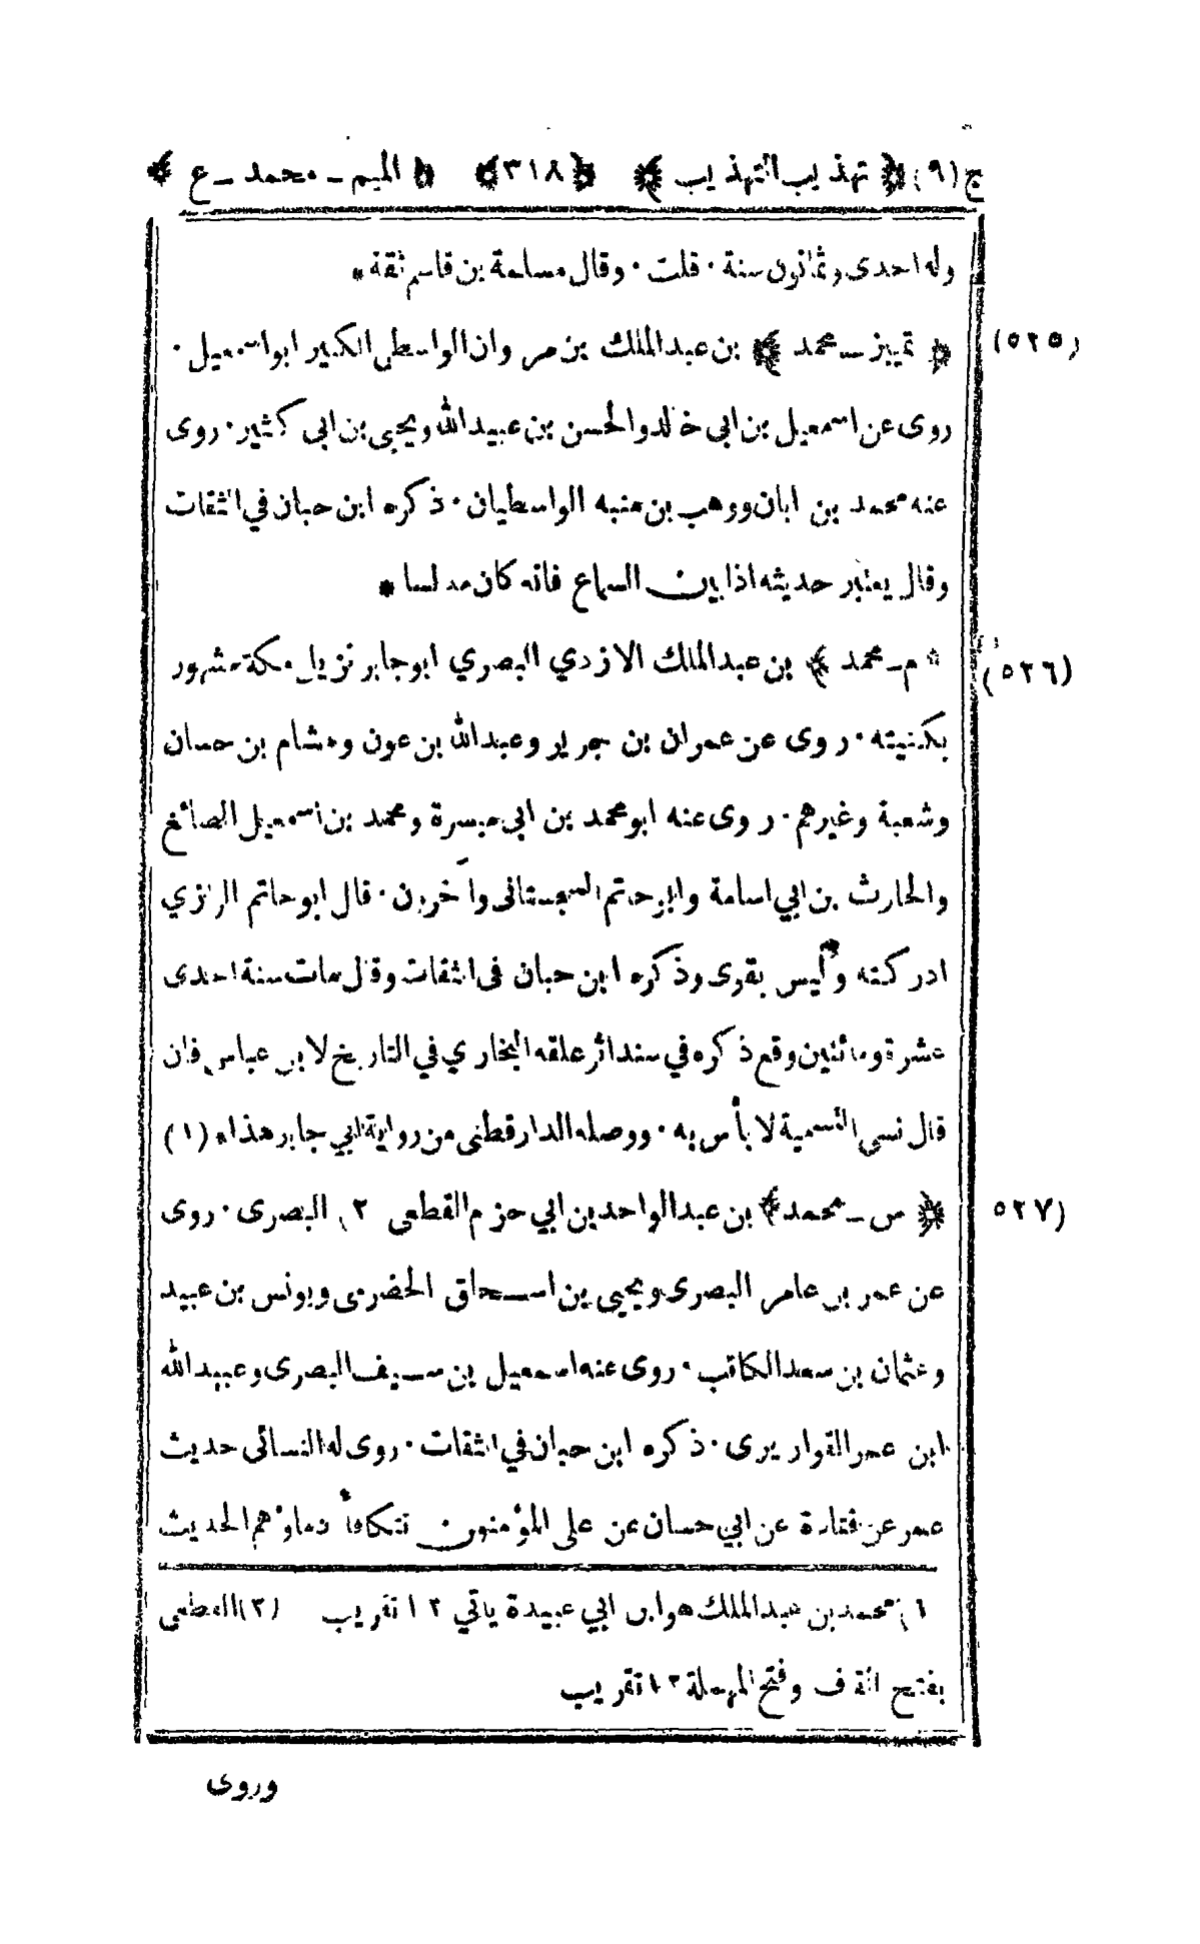 ج(٩) ﴿ تهذيب التهذيب ﴾ ﴿٣١٨﴾ ﴿ الميم - محمد - ع ﴾
وله احدى وثمانون سنة ٠ قلت ٠ وقال مسلمة بن قاسم ثقة *
(٥٢٥) ﴿ تمييز - محمد ﴾ بن عبد الملك بن مروان الواسطى الكبير ابو اسمعيل ٠
روى عن اسمعيل بن ابي خالد والحسن بن عبيد الله ويحيى بن ابى كثير ٠ روى
عنه محمد بن ابان ووهب بن منبه الواسطيان ٠ ذكره ابن حبان في الثقات
وقال يعتبر حديثه اذا بين السماع فانه كان مدلسا *
(٥٢٦) * م - محمد ﴾ بن عبد الملك الازدي البصري ابو جابر نزيل مكة مشهور
بكنيته ٠ روى عن عمران بن جرير وعبد الله بن عون وهشام بن حسان
وشعبة وغيرهم ٠ روى عنه ابو محمد بن ابي ميسرة ومحمد بن اسمعيل الصائغ
والحارث بن ابي اسامة وابو حاتم السجستانى وآخرون ٠ قال ابو حاتم الرازي
ادركته وليس بقوى وذكره ابن حبان فى الثقات وقال مات سنة احدى
عشرة ومائتين وقع ذكره في سند اثر علقه البخاري في التاريخ لابن عباس فان
قال نسى التسمية لا بأس به ٠ ووصله الدارقطنى من رواية ابي جابر هذا * (١)
٥٢٧) ﴿ س - محمد ﴾ بن عبد الواحد بن ابي حزم القطعى ٢) البصرى ٠ روى
عن عمر بن عامر البصرى ويحيى بن اسحاق الحضرمى ويونس بن عبيد
وعثمان بن سعد الكاتب ٠ روى عنه اسمعيل بن سيف البصرى وعبيد الله
ابن عمر القواريرى ٠ ذكره ابن حبان في الثقات ٠ روى له النسائى حديث
عمر عن قتادة عن ابي حسان عن على المؤمنون تتكافأ دماؤهم الحديث
١) محمد بن عبد الملك هو ابن ابي عبيدة ياتي ١٢ تقريب (٢) القطعى
بفتح القاف وفتح المهملة ١٢ تقريب
وروى